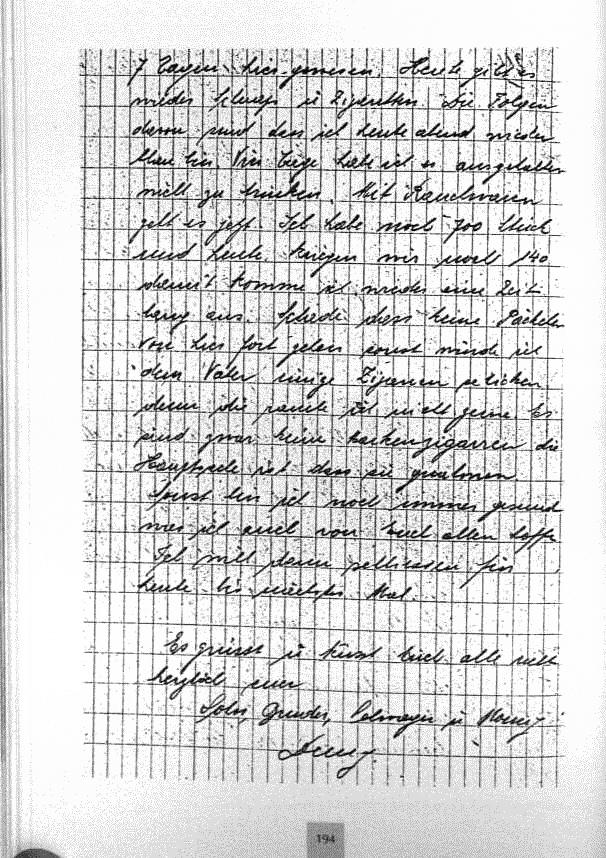 7 Tagen hies gewesen. Heute gibt es
wieder Schnaps u Zigaretten. Die Folgen
davon sind dass ich heute abend wieder
blau bin. Vier Tage habe ich es ausgehalten
nicht zu trinken. Mit Rauchwaren
geht es jetzt. Ich habe noch 700 Stück
und heute kriegen wir noch 140
damit komme ich wieder eine Zeit
lang aus. Schade dass keine Päckchen
von hier fort gehen sonst würde ich
dem Vater einige Zigarren schicken
denn die rauche ich nicht gerne. Es
sind zwar keine Markenzigarren die
Hauptsache ist dass sie qualmen.
Sonst bin ich noch immer gesund
was ich auch von Euch allen hoffe
Ich will denn schliessen für
heute bis nächstes Mal.
Es grüsst u küsst Euch alle recht
herzlich euer
Sohn, Bruder, Schwager u
194